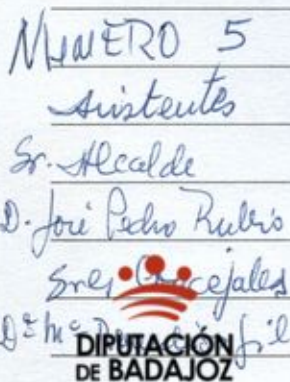 NUMERO 5
Asistentes
Sr. Alcalde
D. José Pedro Rubio
Sres Concejales
Dª Mª
DIPUTACIÓN
DE BADAJOZ